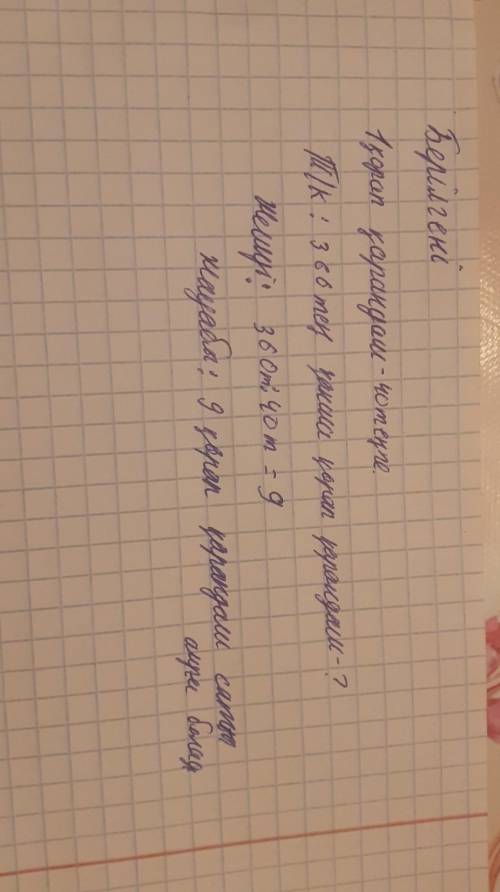 Берілгені
1 қорап қарандаш - 40 теңге.
Т/К: 360 тең қанша қорап қарандаш - ?
Шешуі: 360т:40т = 9
Жауабы: 9 қорап қарандаш сатып
алуға болад